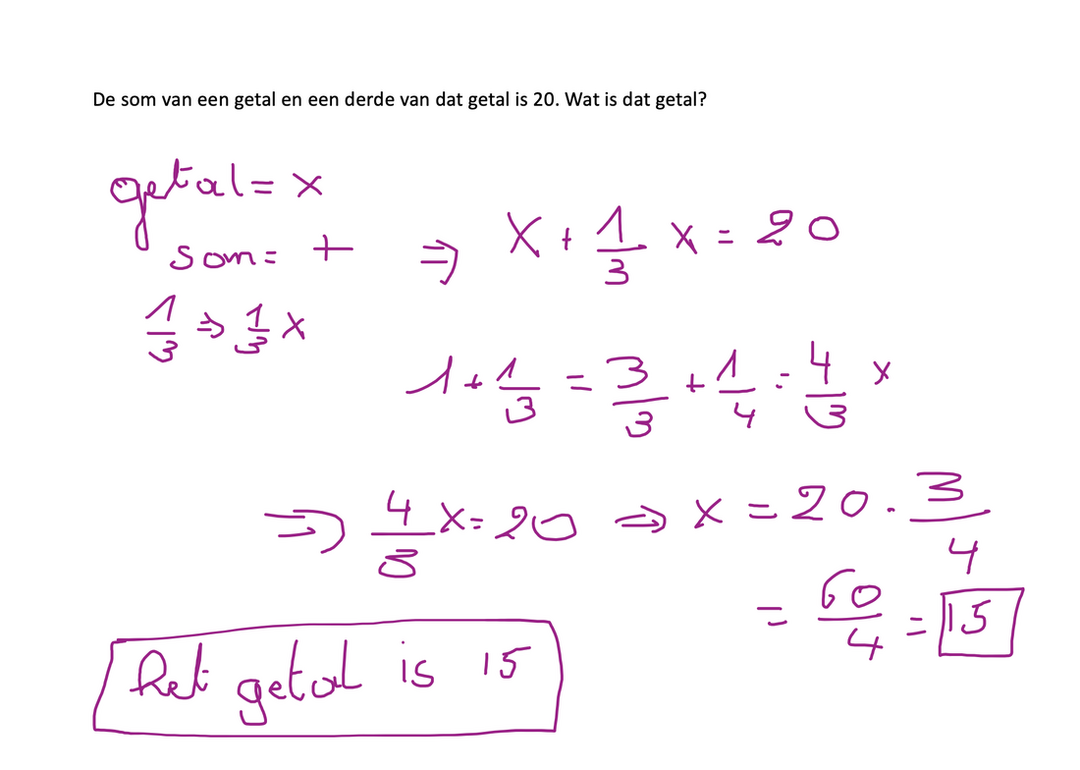 De som van een getal en een derde van dat getal is 20. Wat is dat getal?
getal = x
som = + ⇒ x + 1/3 x = 20
1/3 ⇒ 1/3 x
1 + 1/3 = 3/3 + 1/4 = 4/3 x
⇒ 4/3 x = 20 ⇒ x = 20 · 3/4
= 60/4 = 15
Het getal is 15